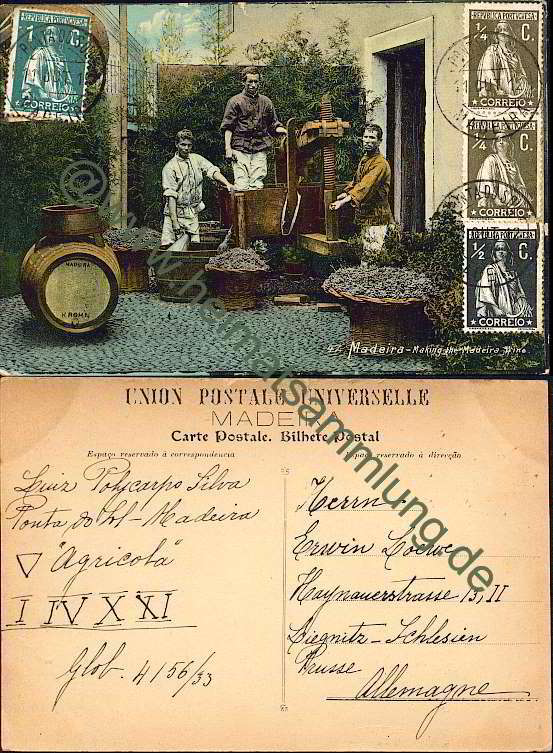 REPUBLICA PORTUGUESA
C.
CORREIO
REPUBLICA PORTUGUESA
¼ C.
CORREIO
¼ C.
CORREIO
REPUBLICA PORTUGUESA
½ C.
CORREIO
MADEIRA
KROHN
Madeira - Making the Madeira Wine
UNION POSTALE UNIVERSELLE
MADEIRA
Carte Postale. Bilhete Postal
Espaço reservado á correspondencia
Espaço reservado á direcção
Luiz Polycarpo Silva
Ponta do Sol - Madeira
▽ "Agricola"
I IV X XI
Glob. 4156/33
Herrn
Erwin Loewe
Haynauerstrasse 13, II
Liegnitz - Schlesien
Prusse
Allemagne